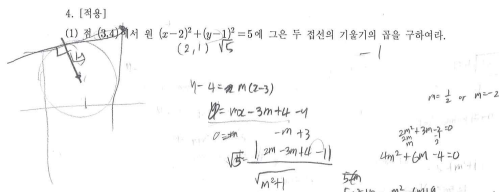 4. [적용]
(1) 점 (3,4)에서 원 (x-2)²+(y-1)²=5에 그은 두 접선의 기울기의 곱을 구하여라.
(2, 1) √5
-1
y-4= m(x-3)
=mx-3m+4-y
-m+3
√5= |2m-3m+4-1|
√m²+1
m=1/2 or m=-2
2m²+3m-2=0
2m -1
m 2
4m²+6m-4=0